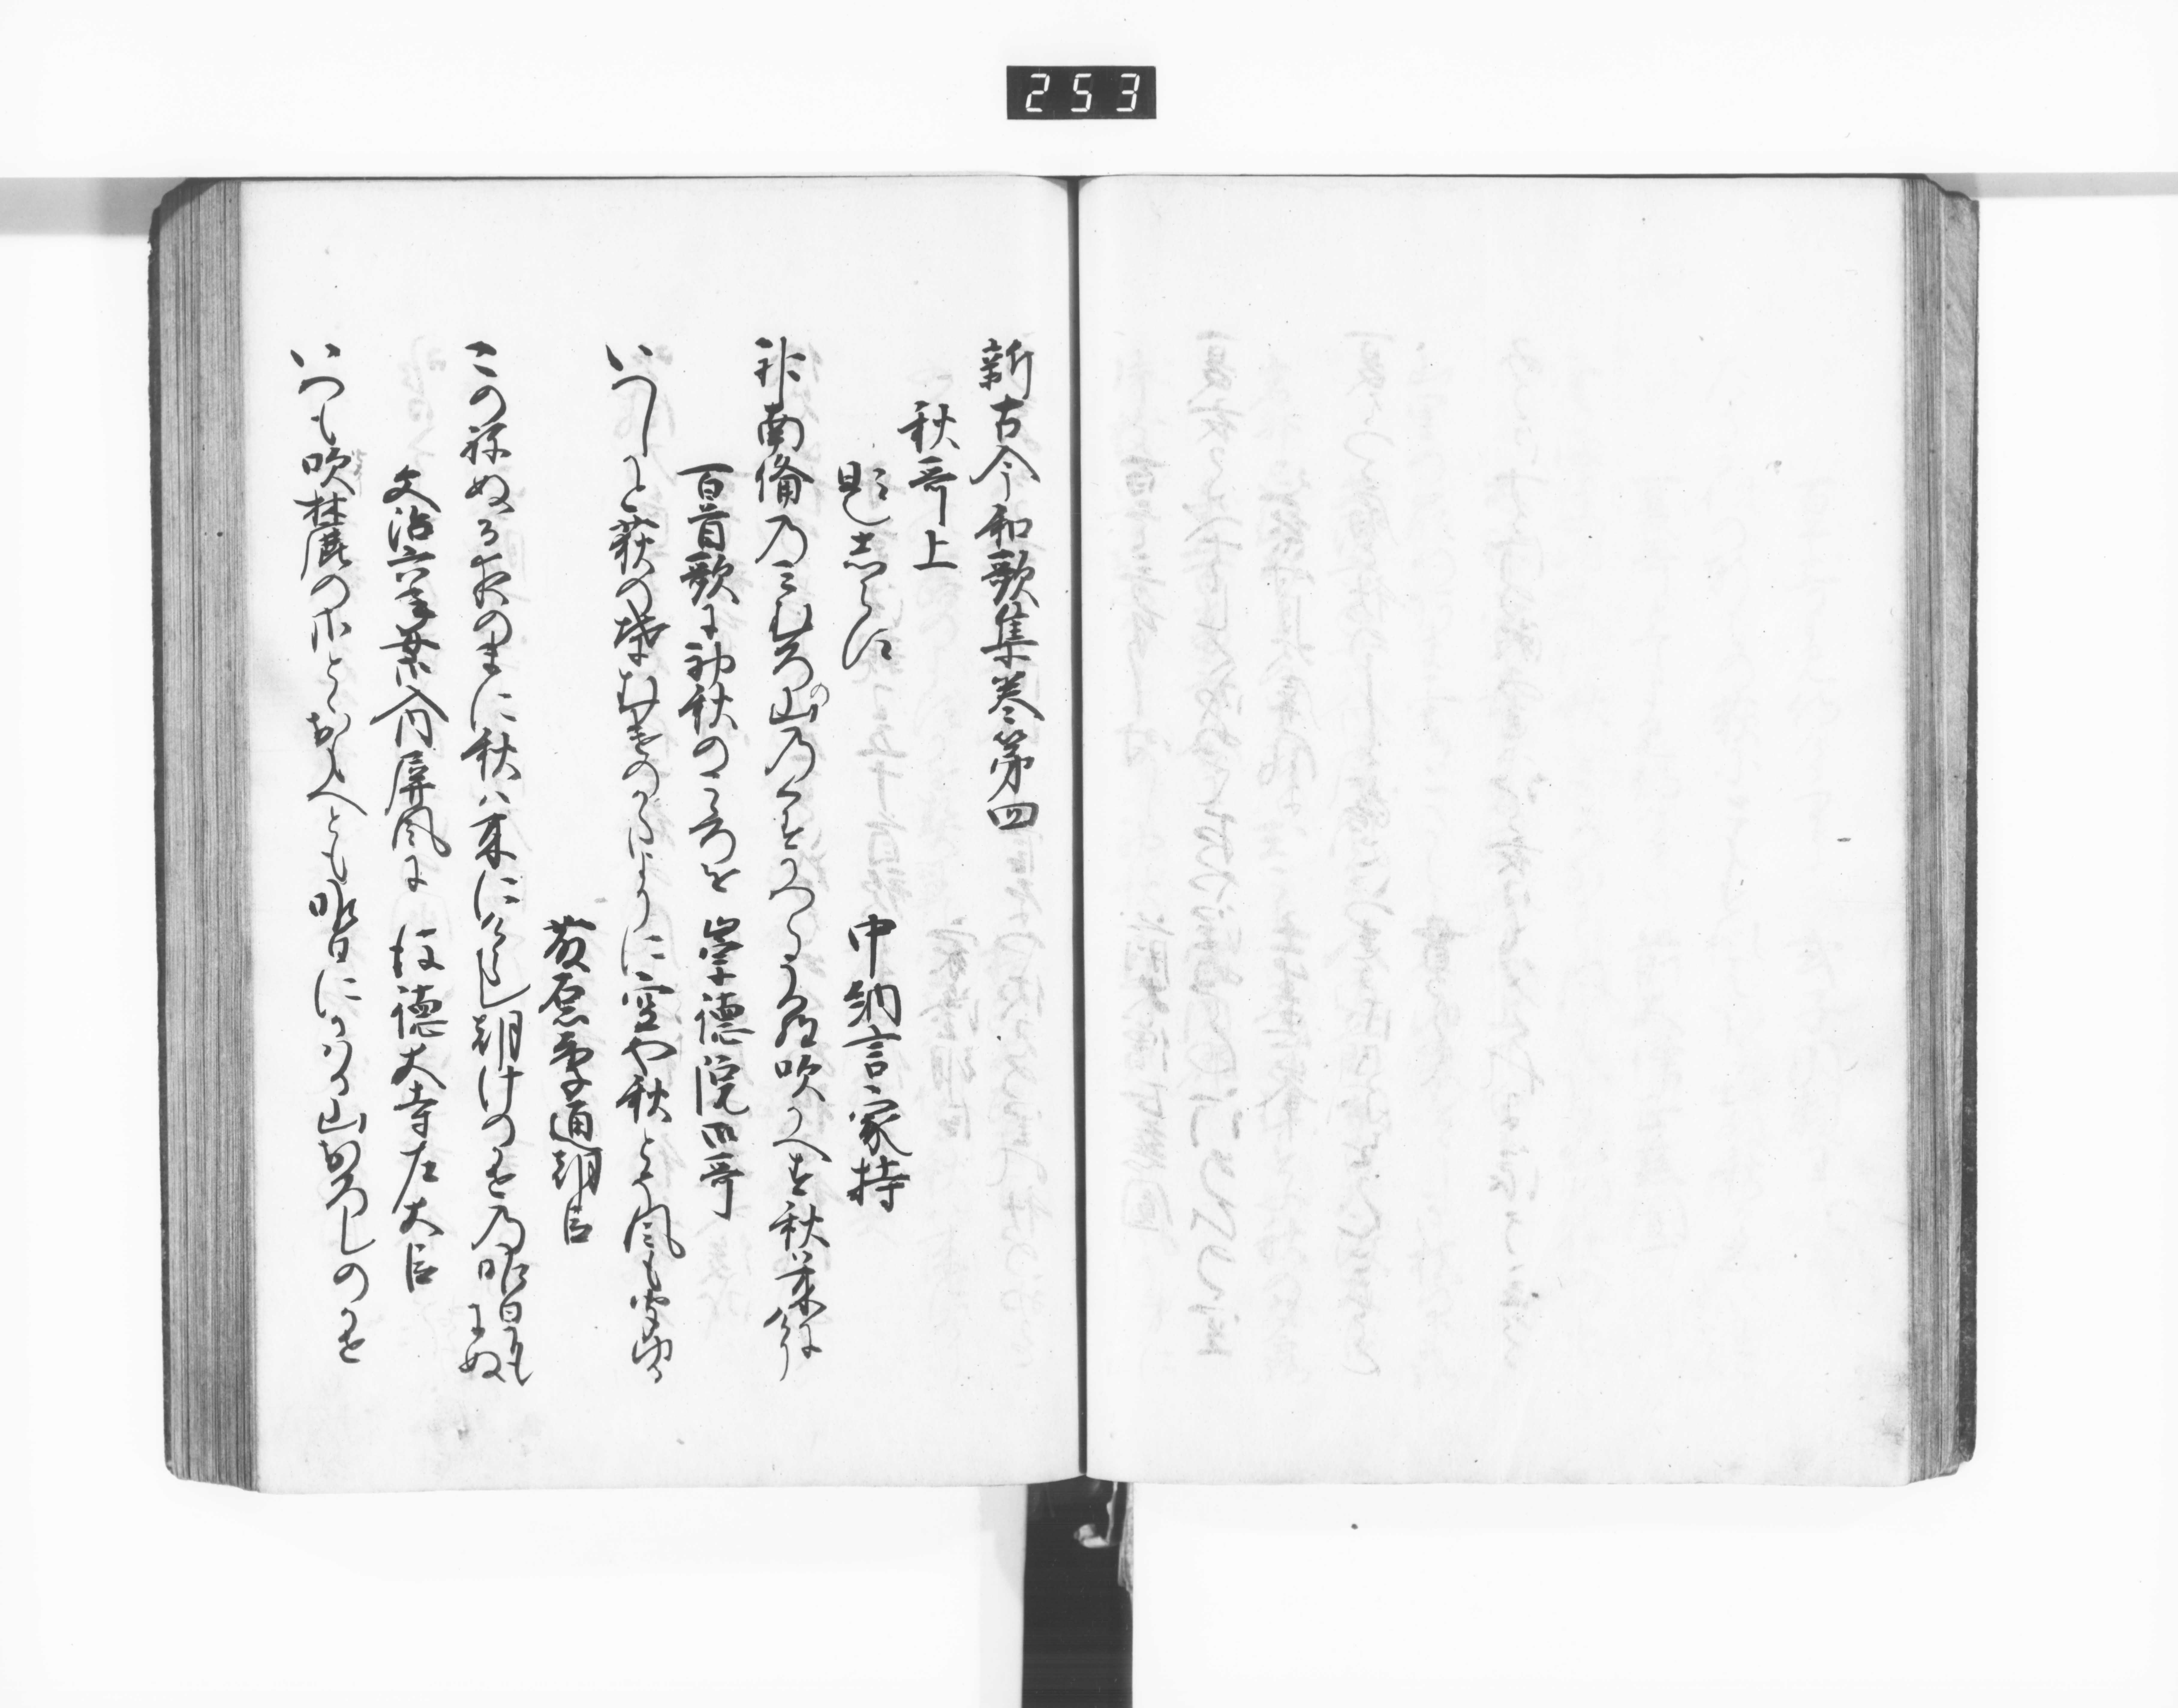 253
新古今和歌集巻第四
秋哥上
題しらす　中納言家持
神南備乃みむろの山乃くすかつらうら吹かへす秋は来にけり
百首歌に初秋のこゝろを　崇徳院御哥
いつしかと荻の葉むけのかたよりに空や秋とそ風も聞ゆる
藤原季通朝臣
この寝ぬる夜のまに秋は来にけらし朝けの風乃昨日にも似ぬ
文治六年女御入内屏風に　後徳大寺左大臣
いつも吹麓の小とおもへとも昨日にかはる山おろしのかせ